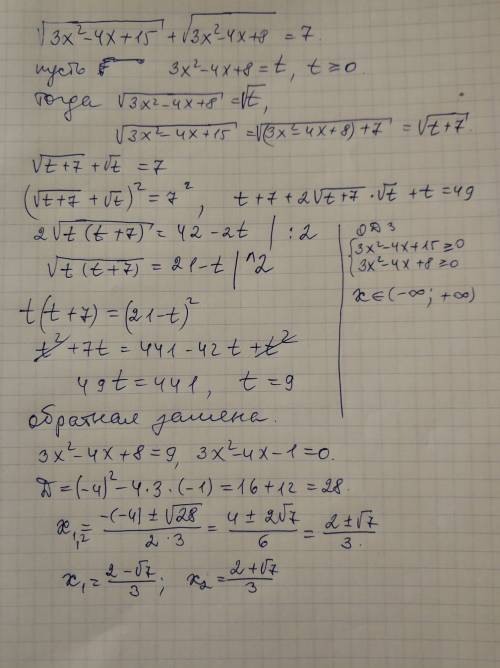 √(3x²-4x+15) + √(3x²-4x+8) = 7.
пусть 3x²-4x+8 = t, t ≥ 0.
тогда √(3x²-4x+8) = √t,
√(3x²-4x+15) = √((3x²-4x+8)+7) = √(t+7).
√(t+7) + √t = 7
(√(t+7) + √t)² = 7², t+7+2√(t+7)·√t + t = 49
2√(t(t+7)) = 42-2t | :2
√(t(t+7)) = 21-t | ^2
ОДЗ
{3x²-4x+15 ≥ 0
3x²-4x+8 ≥ 0
x ∈ (-∞; +∞)
t(t+7) = (21-t)²
t² + 7t = 441 - 42t + t²
49t = 441, t = 9
обратная замена.
3x²-4x+8 = 9, 3x²-4x-1 = 0.
Д = (-4)² - 4·3·(-1) = 16+12 = 28.
x₁,₂ = (-(-4) ± √28)/(2·3) = (4 ± 2√7)/6 = (2 ± √7)/3.
x₁ = (2-√7)/3; x₂ = (2+√7)/3